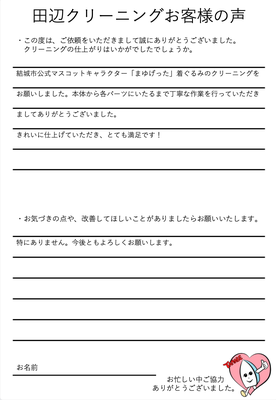 田辺クリーニングお客様の声
・この度は、ご依頼をいただきまして誠にありがとうございました。
クリーニングの仕上がりはいかがでしたでしょうか。
結城市公式マスコットキャラクター「まゆげった」着ぐるみのクリーニングを
お願いしました。本体から各パーツにいたるまで丁寧な作業を行っていただき
ましてありがとうございました。
きれいに仕上げていただき、とても満足です！
・お気づきの点や、改善してほしいことがありましたらお願いいたします。
特にありません。今後ともよろしくお願いします。
お名前
お忙しい中ご協力
ありがとうございました。